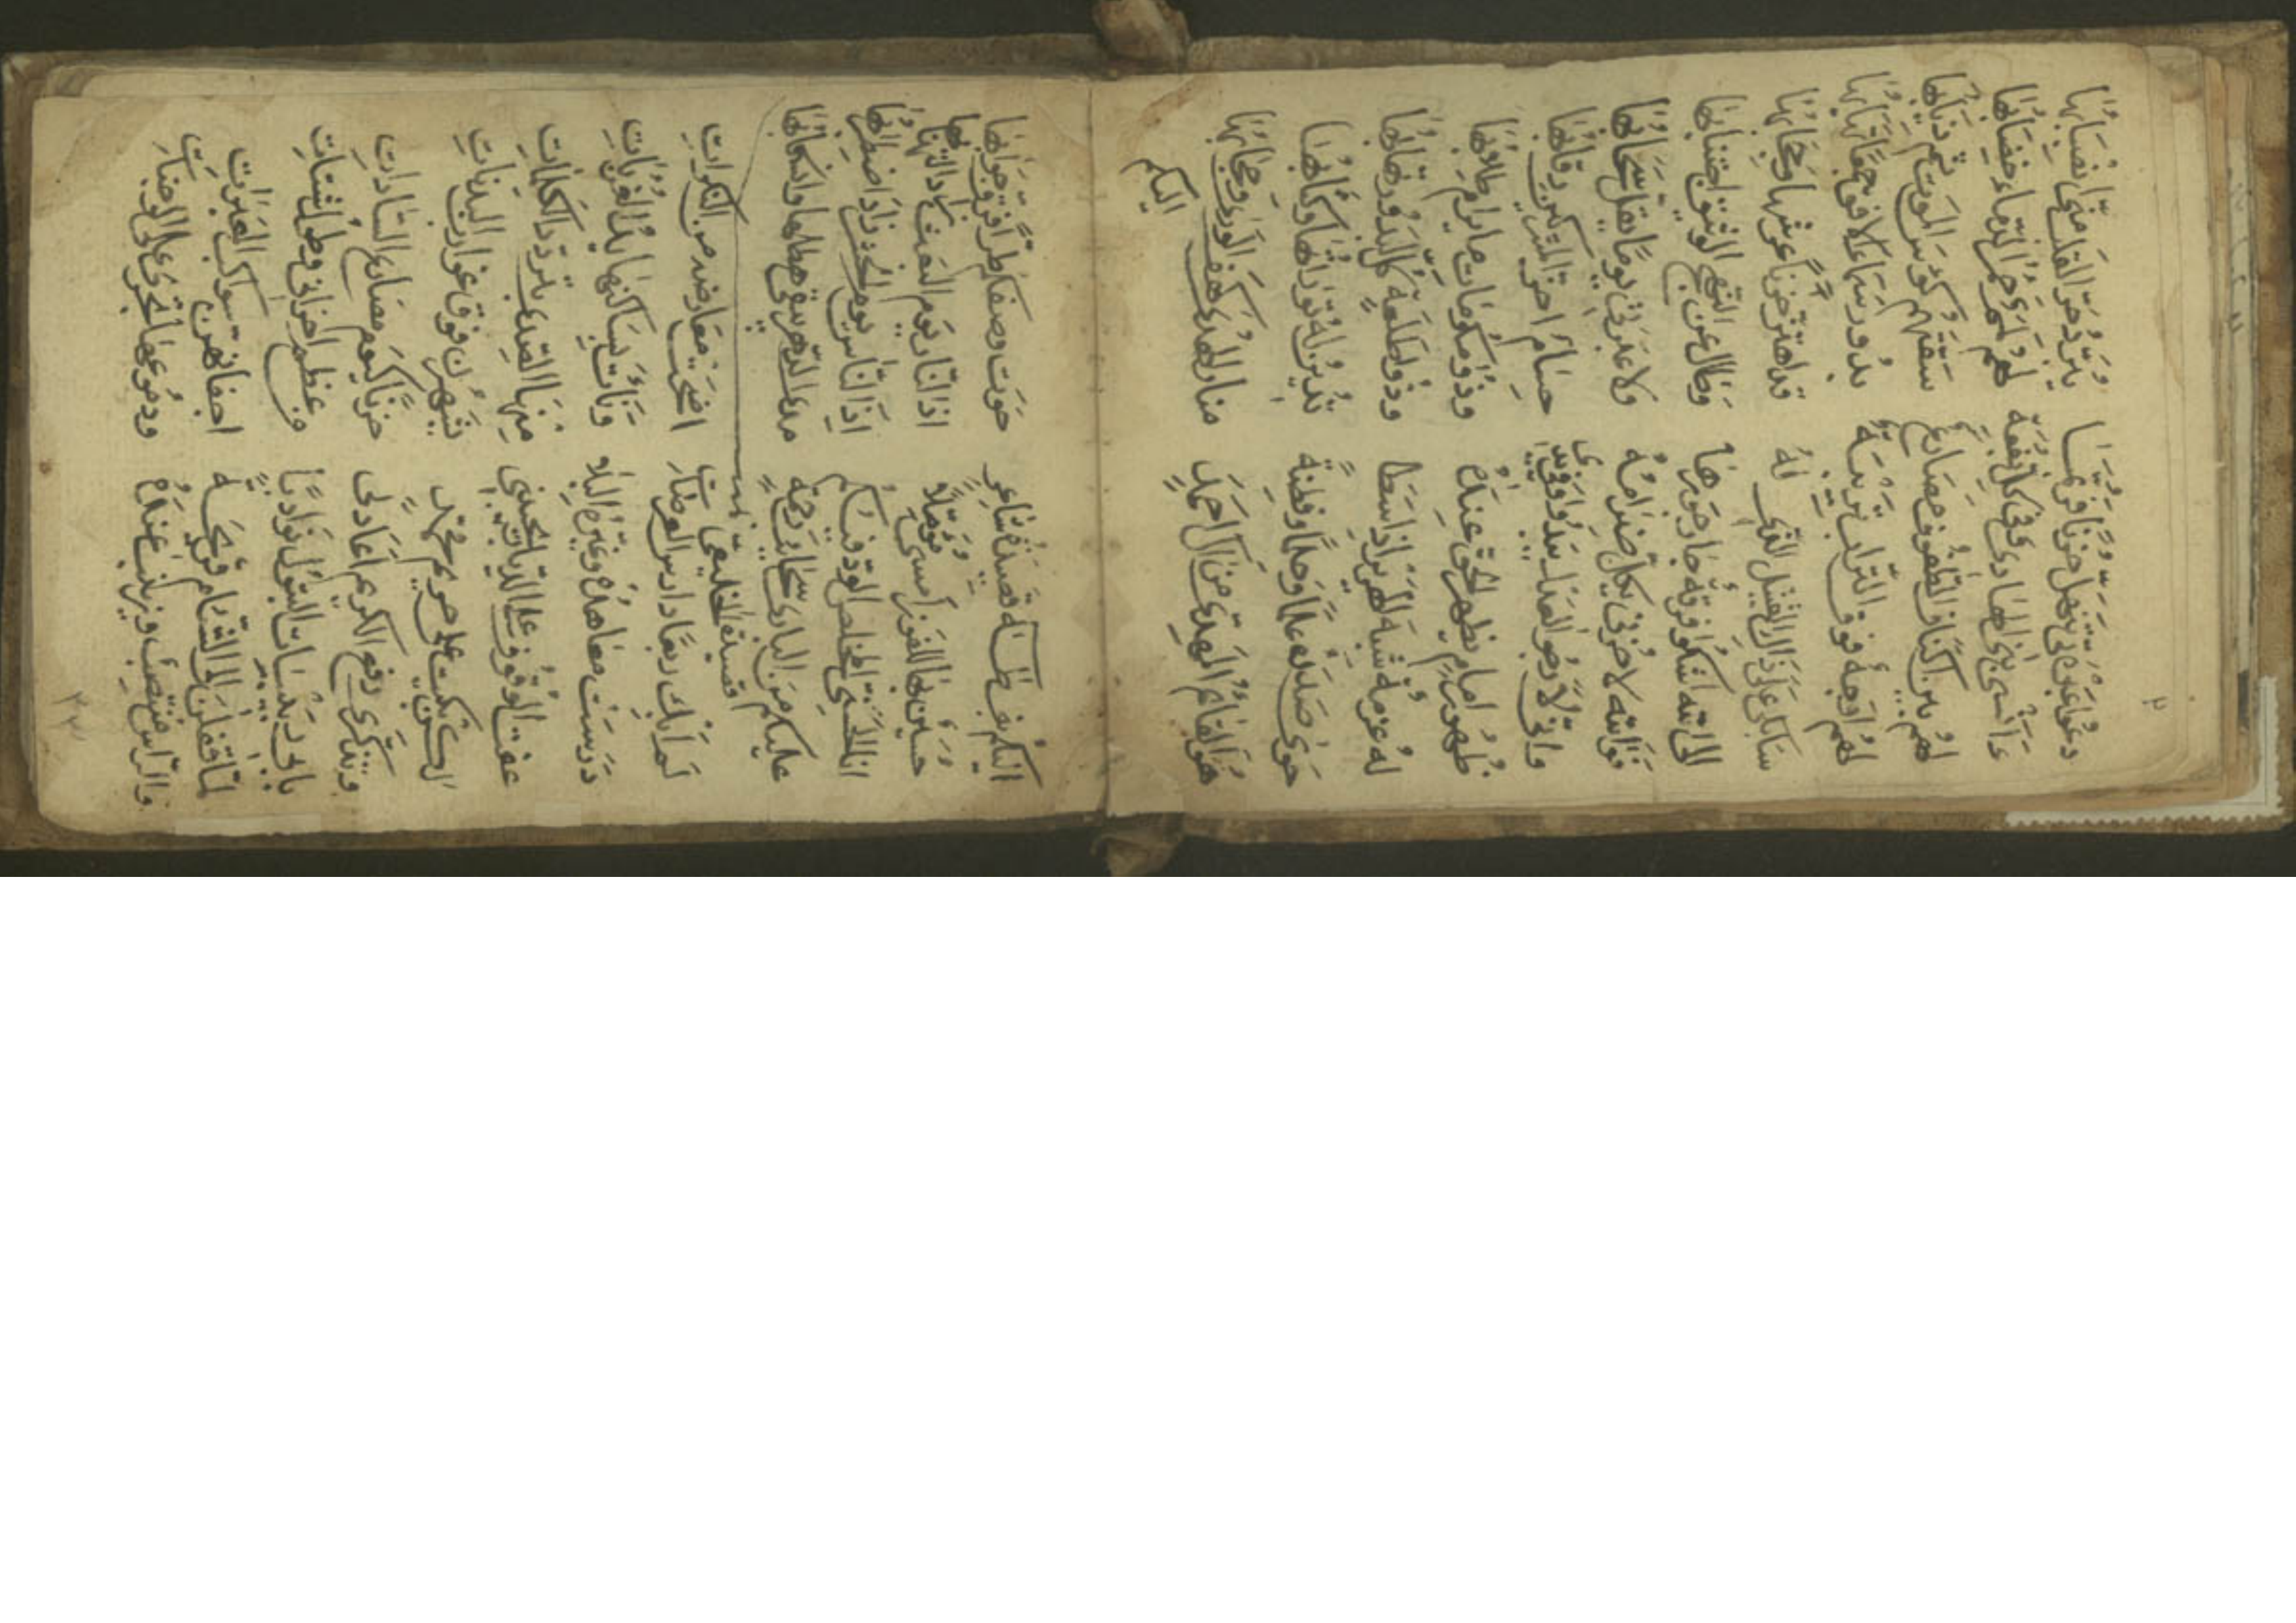 دعوا عبرتي تنهل حزنا فربما يبرد حر القلب مني انصبابها
ءأنسى بني الهادي وفي كل بقعة لهم حمر الدماء خضابها
بين اكناف الطفوف مصارع سقتهم كؤس الموت ثم
لهم اوجه فوق التراب تريبة بدور سماء ترابها
سابكي على ذاك القتيل الذي له قد اهتز حزنا عرشها وحجابها
الى الله اشكو فرقة جار جورها وطال عن النهج الوثيق اجتنابها
فوالله لا حزني ولا عبرتي يوما يقل سحابها
واني لارجو العدل يبدو وفي يدي حسام احز المشركين رقابها
ظهور امام يظهر الحق عنده وذو مكرمات ما يرام طلابها
له عزمة شبه الهزبر اذا سطا وذو طلعة كل البدور نقابها
حوى صدره علما وحلما وفطنة تدين له توراتها وكتابها
هو القائم المهدي من ال احمد منار الهدى كهف الورى وحجابها
اليكم
اليكم بني طه قصيدة شاعر حوت وصفكم طرا فرق جوابها
حسين بها للفوز امسى مؤملا اذا النار يوم البعث زاد التهابها
انا الخلعي المخلص الود فيكم اذ الناس يوم الحشر زاد اضطرابها
عليكم من الباري سحائب رحمة مدى الدهر يسقي هطلها وانسكابها
قصيدة الخليعي
لم ابك ربعا دارس العرصات اضحت معارضه من النكرات
درست معاهده وغيره البلا ونأت بساكنها يد الغربات
عفت الوقوف على الديار يجيبني منها الصدى بتردد الكلمات
لكن بكيت على حريم محمد يشهرن فوق غوارب البدنات
وتذكري الكريم اعاد لي حزنا كيوم مصارع السادات
البتول نوادبا من عظم احزاني وطول شتات
لما قفلن الى الشام قريحة اجفانهن سواكب العبرات
والراس منتصب وزينب عنده ودموعها تجري على الوجنات